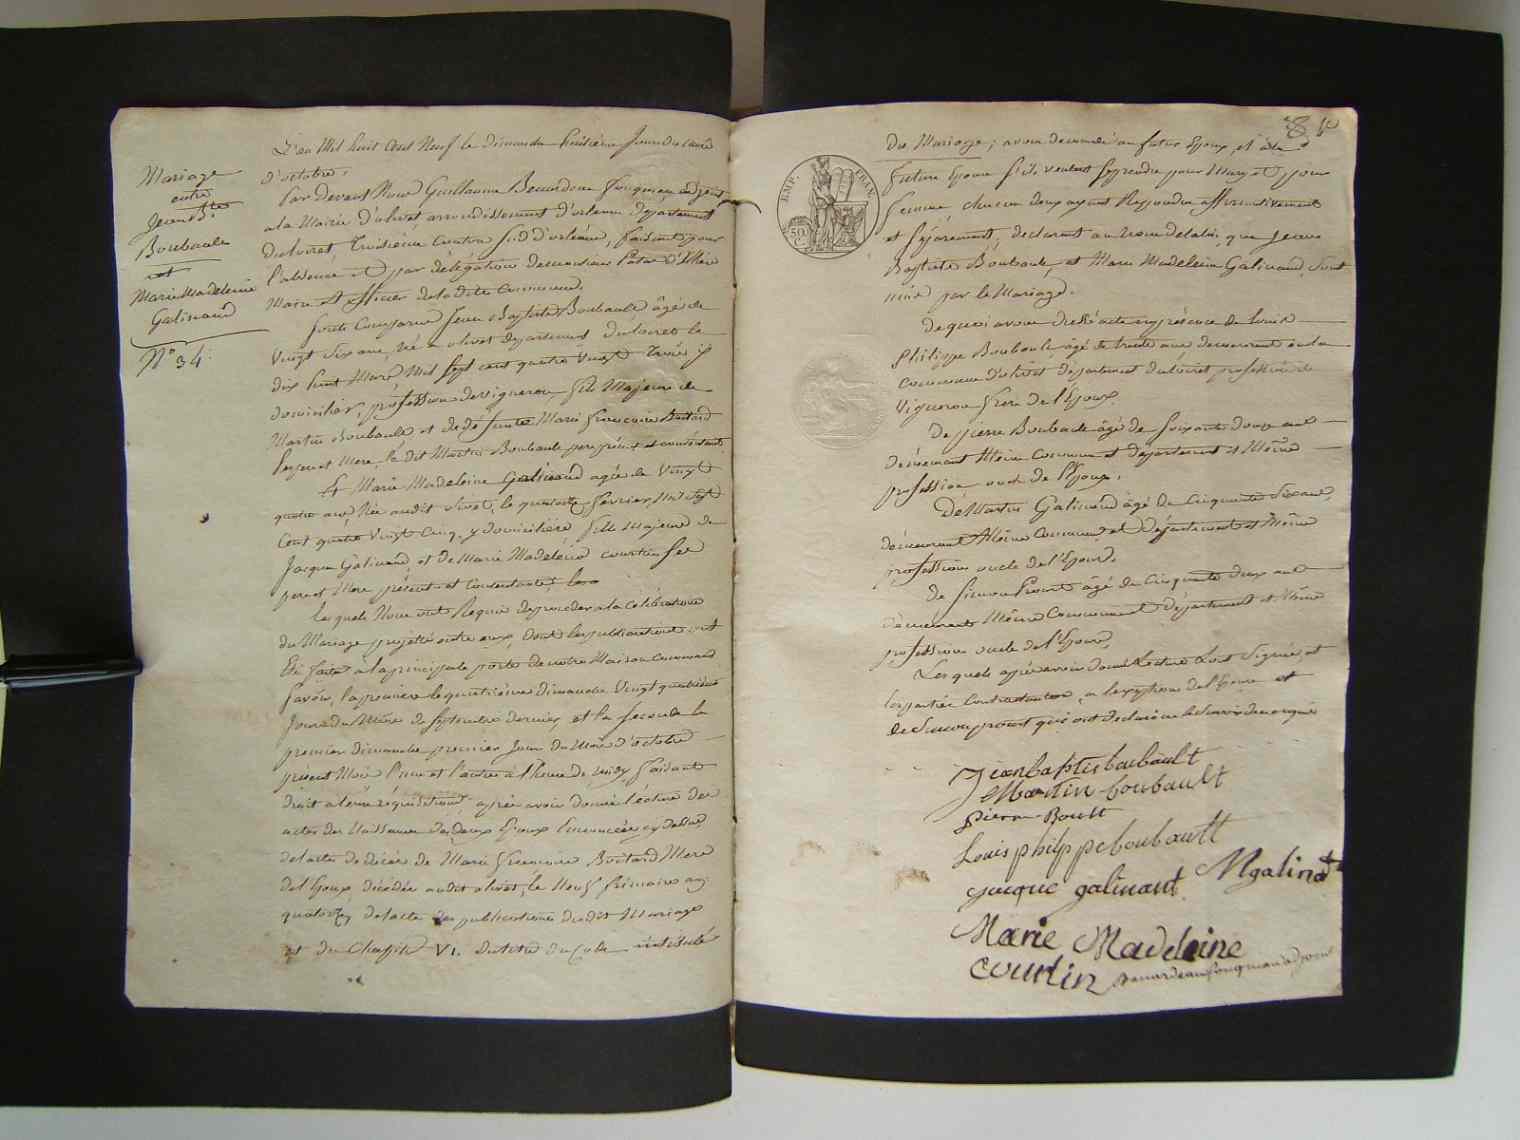 Mariage
entre
Jean Bte
Boubault
et
Marie Madeleine
Galinand
N° 34.
L'an Mil huit Cent Neuf le dimanche huitième Jour du
d'octobre,
Par devant Nous Guillaume adjoint
a la Mairie d'olivet arrondissement d'orleans Département
du loiret, troisième Canton Sud d'orléans, faisant pour
l'absence et par délégation de monsieur
Maire et officier de la dite Commune.
Sont Comparus Jean Baptiste Boubault âgé de
Vingt Six ans, Né a olivet département du loiret le
dix huit Mars, Mil Sept cent quatre Vingt trois y
domicilier, profession de vigneron fils Majeur de
Martin Boubault et de dé funte Marie Françoise Boitard
Ses pere et Mere, le dit Martin Boubault pere présent et consentant
Et Marie Madeleine Galinand agée de Vingt
quatre ans, Née audit olivet, le quatorze février, Mil Sept
Cent quatre Vingt Cinq, y domiciliée fille Majeure de
Jacque Galinand, et de Marie Madeleine courtin Ses
pere et Mere présents et Consentants
les quels Nous ont Requis de procéder a la Célébration
du Mariage projetté entre eux, dont les publications ont
Eté faite a la principale porte de notre Maison Commune
Savoir, la premiere le quatrième dimanche Vingt quatrième
Jour du Mois de Septembre dernier, et la Seconde le
premier dimanche premier Jour du Mois d'octobre
présent Mois l'une et l'autre a l'heure de midy, faisant
droit a leur réquisitions après avoir donné lecture des
actes de Naissance des deux Epoux Enoncées cy dessus,
de l'acte de décès de Marie Françoise Boitard Mere
de l'Epoux, décédée audit olivet, le Neuf frimaire an
quatorze, de l'acte des publications dudit Mariage
et du Chapitre VI. du titre du Code intitulé
EMP. FRAN.
50
C.
du Mariage; avons demandé au futur Epoux, et à la
future Epouse S'ils veulent Se prendre pour Mary et pour
femme chacun deux ayant Répondu affirmativement
et Séparément, declarons au Nom de la loi, que Jean
Baptiste Boubault, et Marie Madeleine Galinand, Sont
unis par le Mariage.
De quoi avons dressé acte en présence de Louis
Philippe Boubault âgé de trente ans demeurant en la
Commune d'olivet département du loiret profession de
Vigneron frere de l'Epoux.
De pierre Boubault âgé de Soixante douze ans
demeurant Même Commune et département et Même
profession oncle de l'Epoux.
De Martin Galinand âgé de Cinquante Six ans,
demeurant Même Commune et département et Même
profession oncle de l'Epouse.
de Simon âgé de Cinquante deux ans
demeurant Même Commune et département et Même
profession oncle de l'Epouse,
Les quels après avoir donné lecture Sont Signés, et
les parties Contractantes, a l'exception de l'Epouse et
de Simon qui ont declaré ne le Savoir de ce enquis
Jean baptiste boubault
Martin boubault
pierre Boult
Louis philppe boubault
Jacque galinant Mgalinat
Marie Madeleine
Courtin